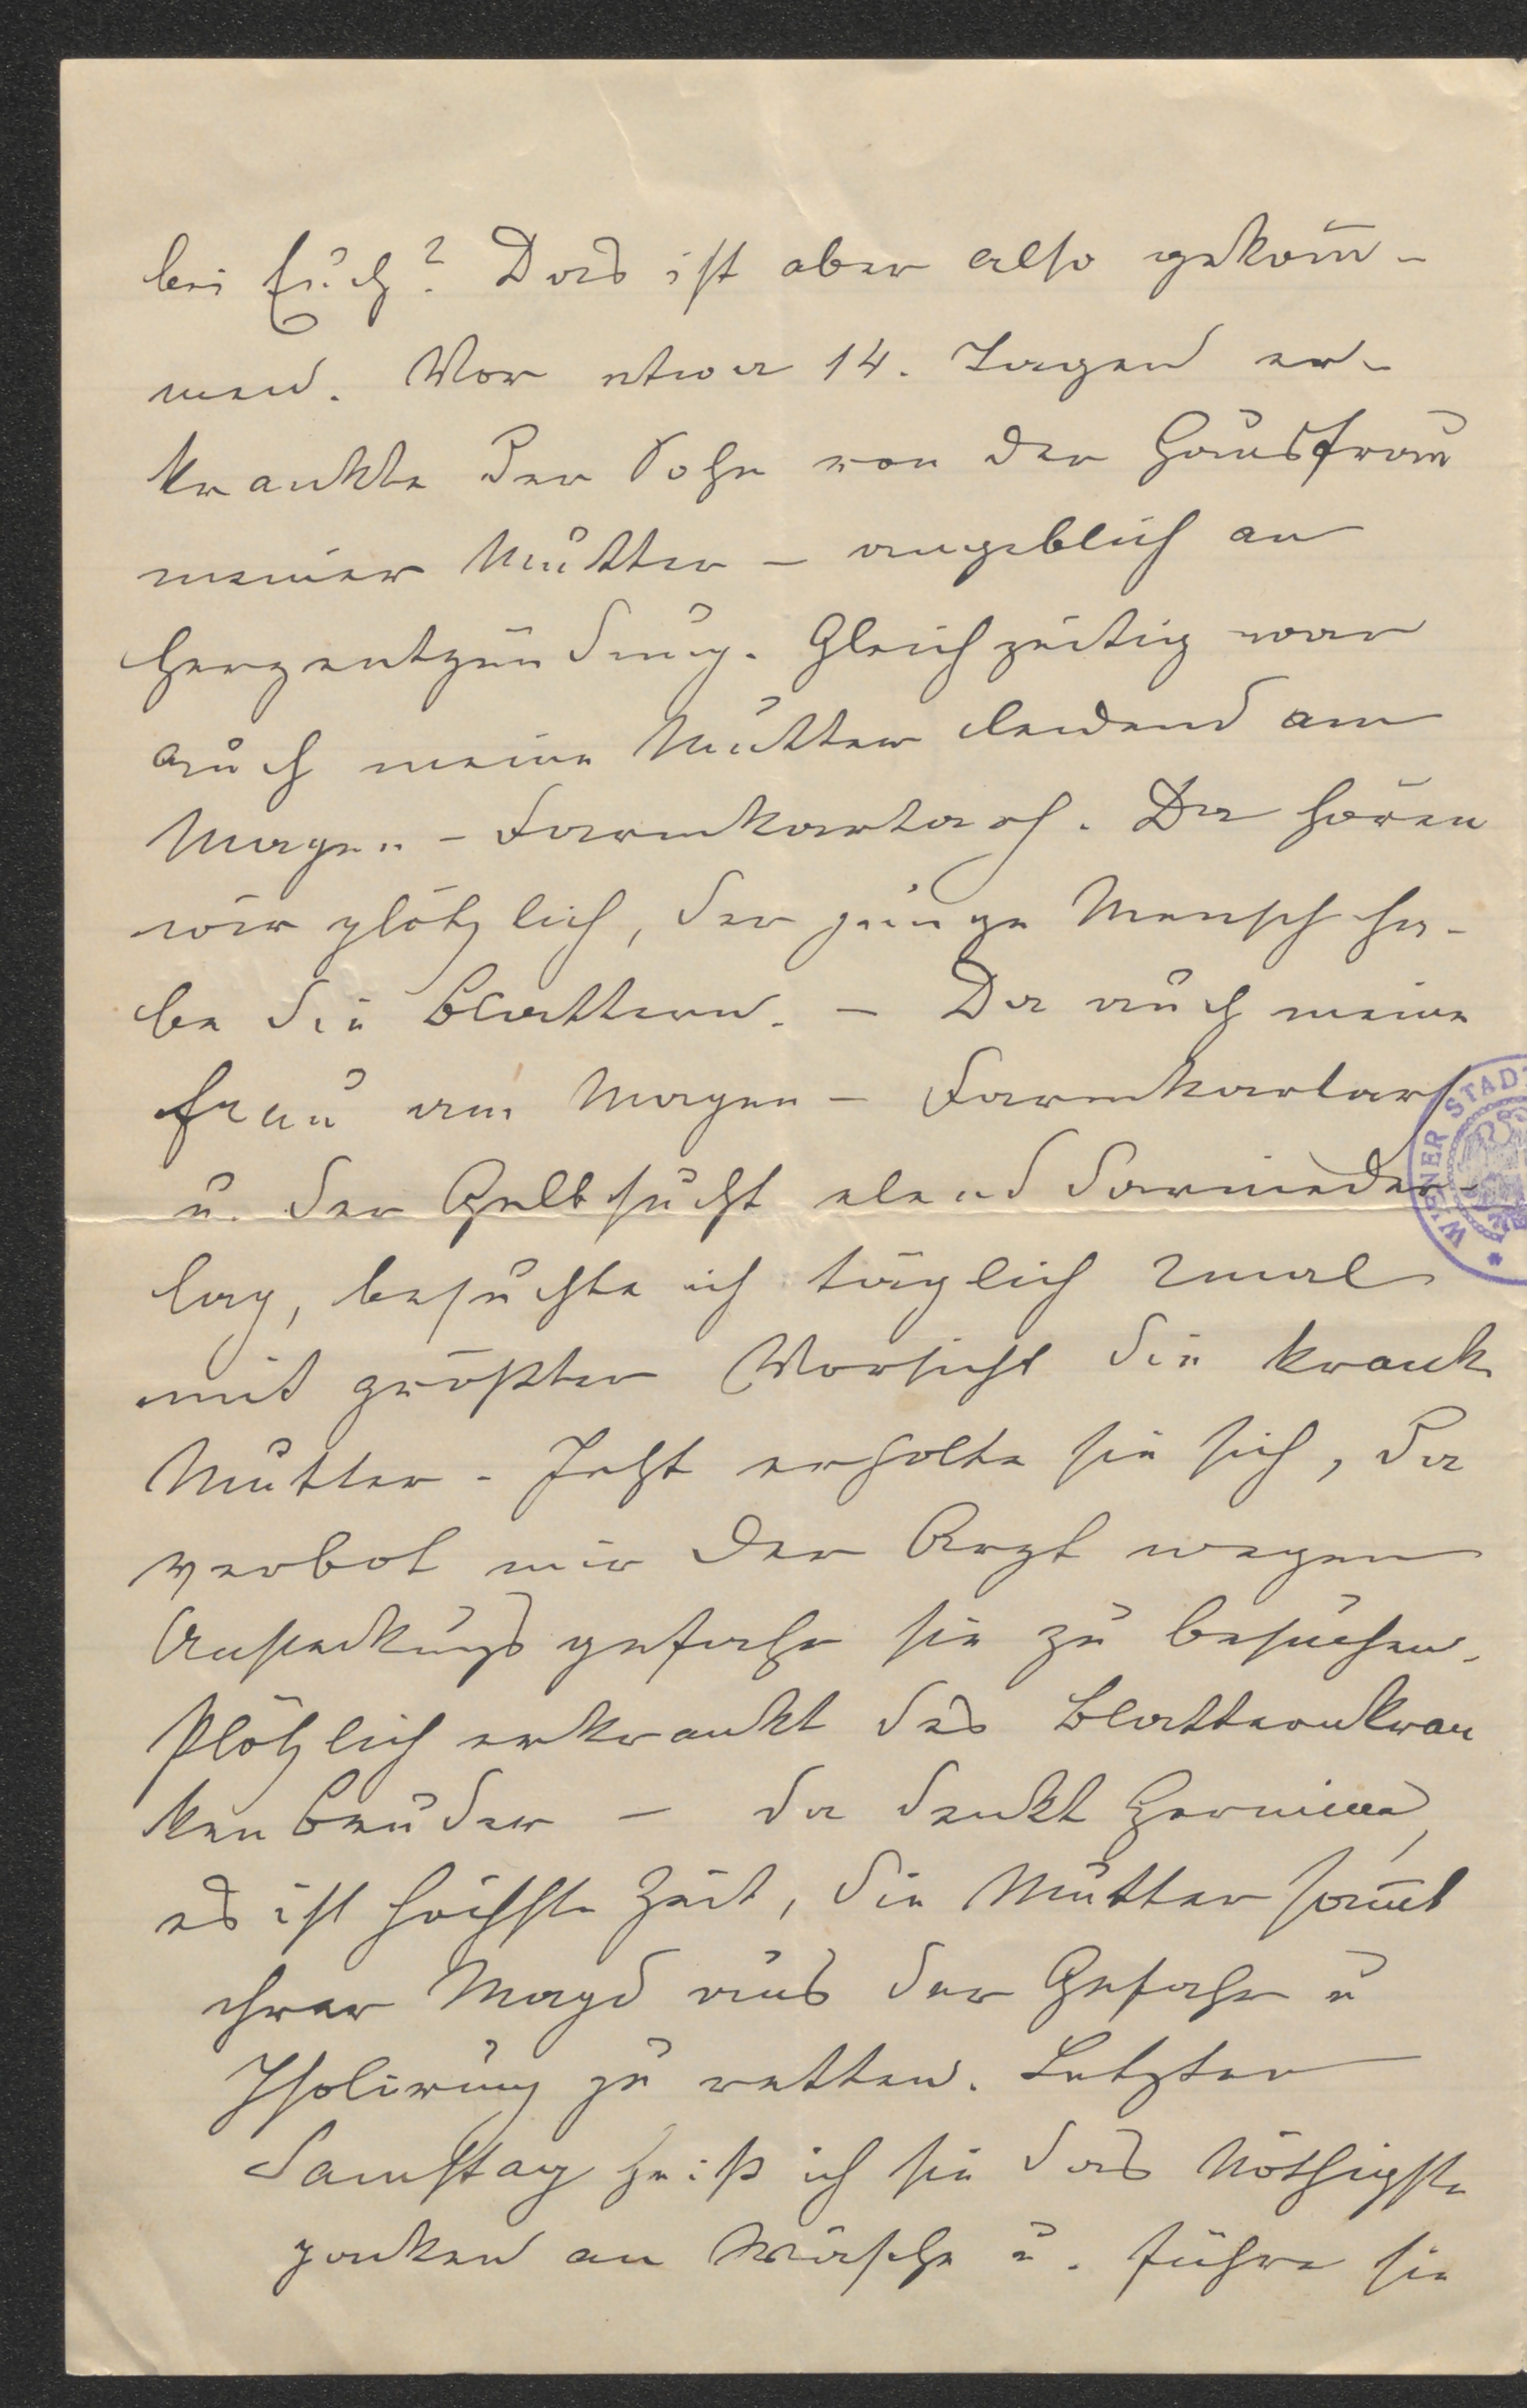 bei Euch? Das ist aber also gekom̅-
men. Vor etwa 14. Tagen er-
krankte der Sohn von der Hausfrau
meiner Mutter – angeblich an
Herzentzündung. Gleichzeitig war
auch meine Mutter leidend am
Magen-Darmkartarh. Da hören
wir plötzlich, der junge Mensch ha-
be die Blattern. – Da auch meine
Frau am Magen-Darmkartarh
u. der Gelbsucht elend darnieder-
lag, besuchte ich täglich 2mal
mit größter Vorsicht die kranke
Mutter. Jetzt erholte sie sich, da
verbot mir der Arzt wegen
Ansteckungsgefahr sie zu besuchen.
Plötzlich erkrankt des Blatternkran
ken Bruder – da denkt Hermine,
es ist höchste Zeit, die Mutter sam̅t
ihrer Magd aus der Gefahr u
Isolirung zu retten. Letzten
Samstag heiß ich sie das Nöthigste
packen an Wäsche u. führe sie
WIENER STADT